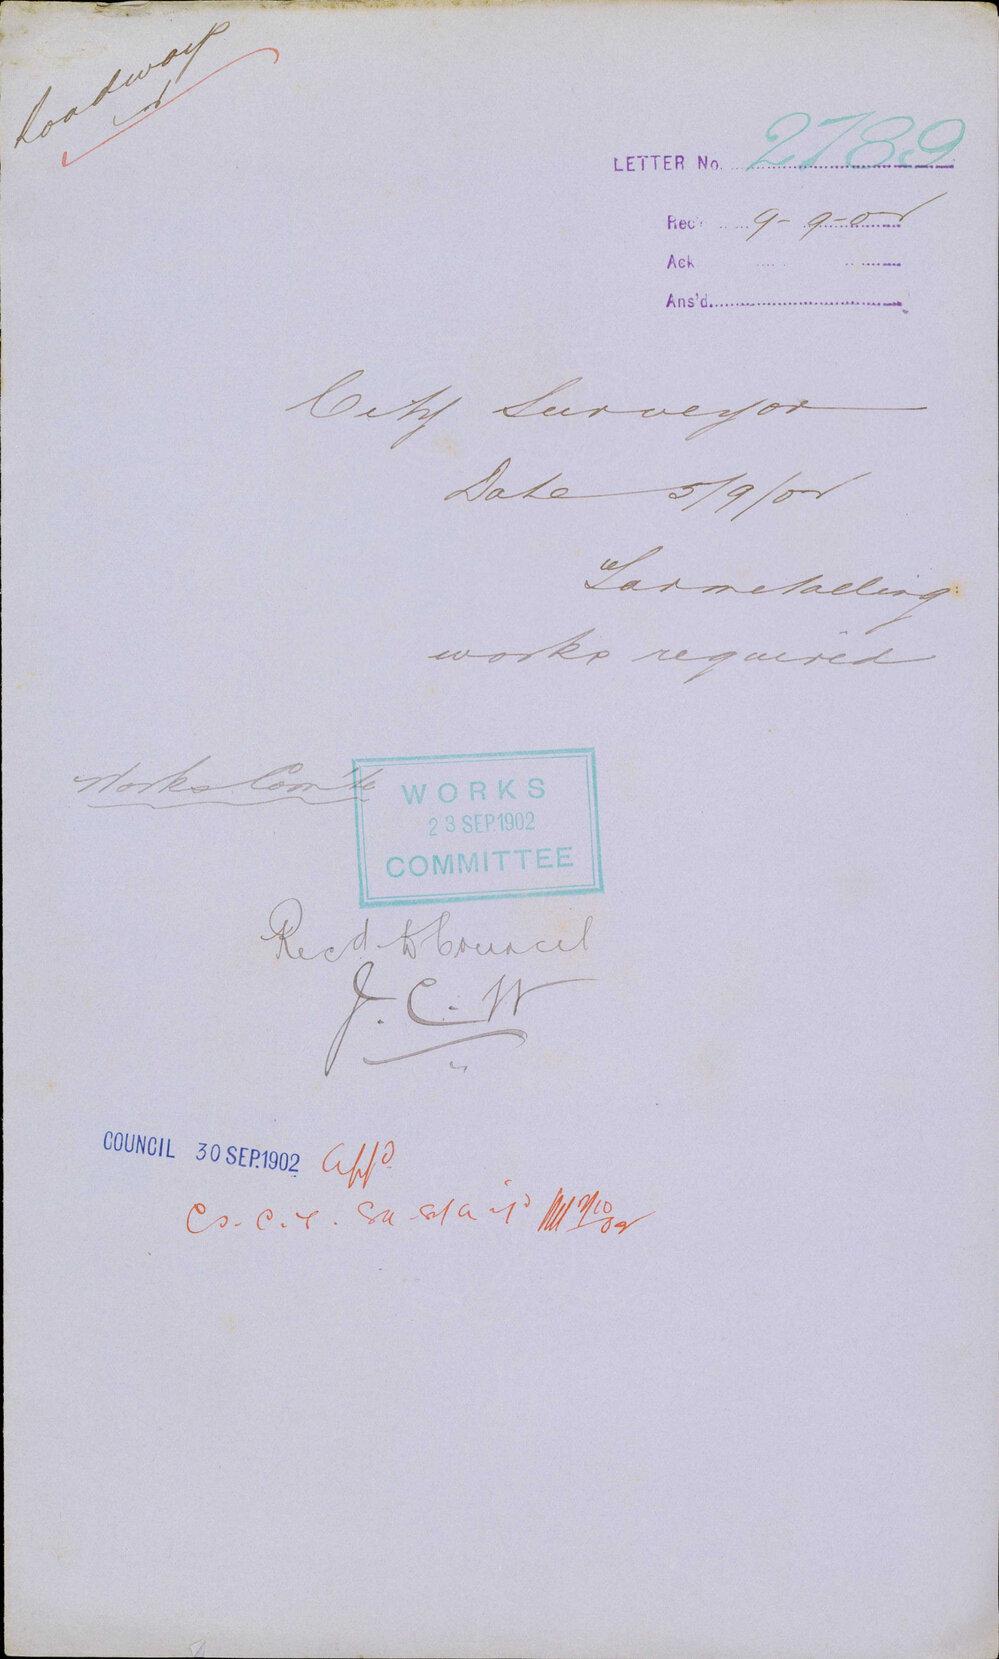 Roadways
LETTER No. 2789
Rec'd 9-9-02
Ack
Ans'd
City Surveyor
Date 5/9/02
Tarmetalling
works required
Works Comte
WORKS
23 SEP.1902
COMMITTEE
Recd to Council
J. C. W
COUNCIL 30 SEP.1902 appd
2/10/02